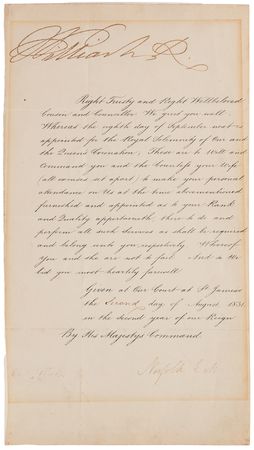 William R.
Right Trusty and Right Wellbeloved
Cousin and Councillor We greet you well.
Whereas the eighth day of September next is
appointed for the Royal Solemnity of Our and
the Queens Coronation These are to Will and
Command you and the Countess your Wife
(all excuses set apart) to make your personal
attendance on Us at the time abovementioned
furnished and appointed as to your Rank
and Quality appertaineth there to do and
perform all such Services as shall be required
and belong unto you respectively Whereof
you and she are not to fail And so We
bid you most heartily farewell
Given at Our Court at St James's
the Second day of August 1831
in the second year of our Reign
By His Majestys Command.
Norfolk E M